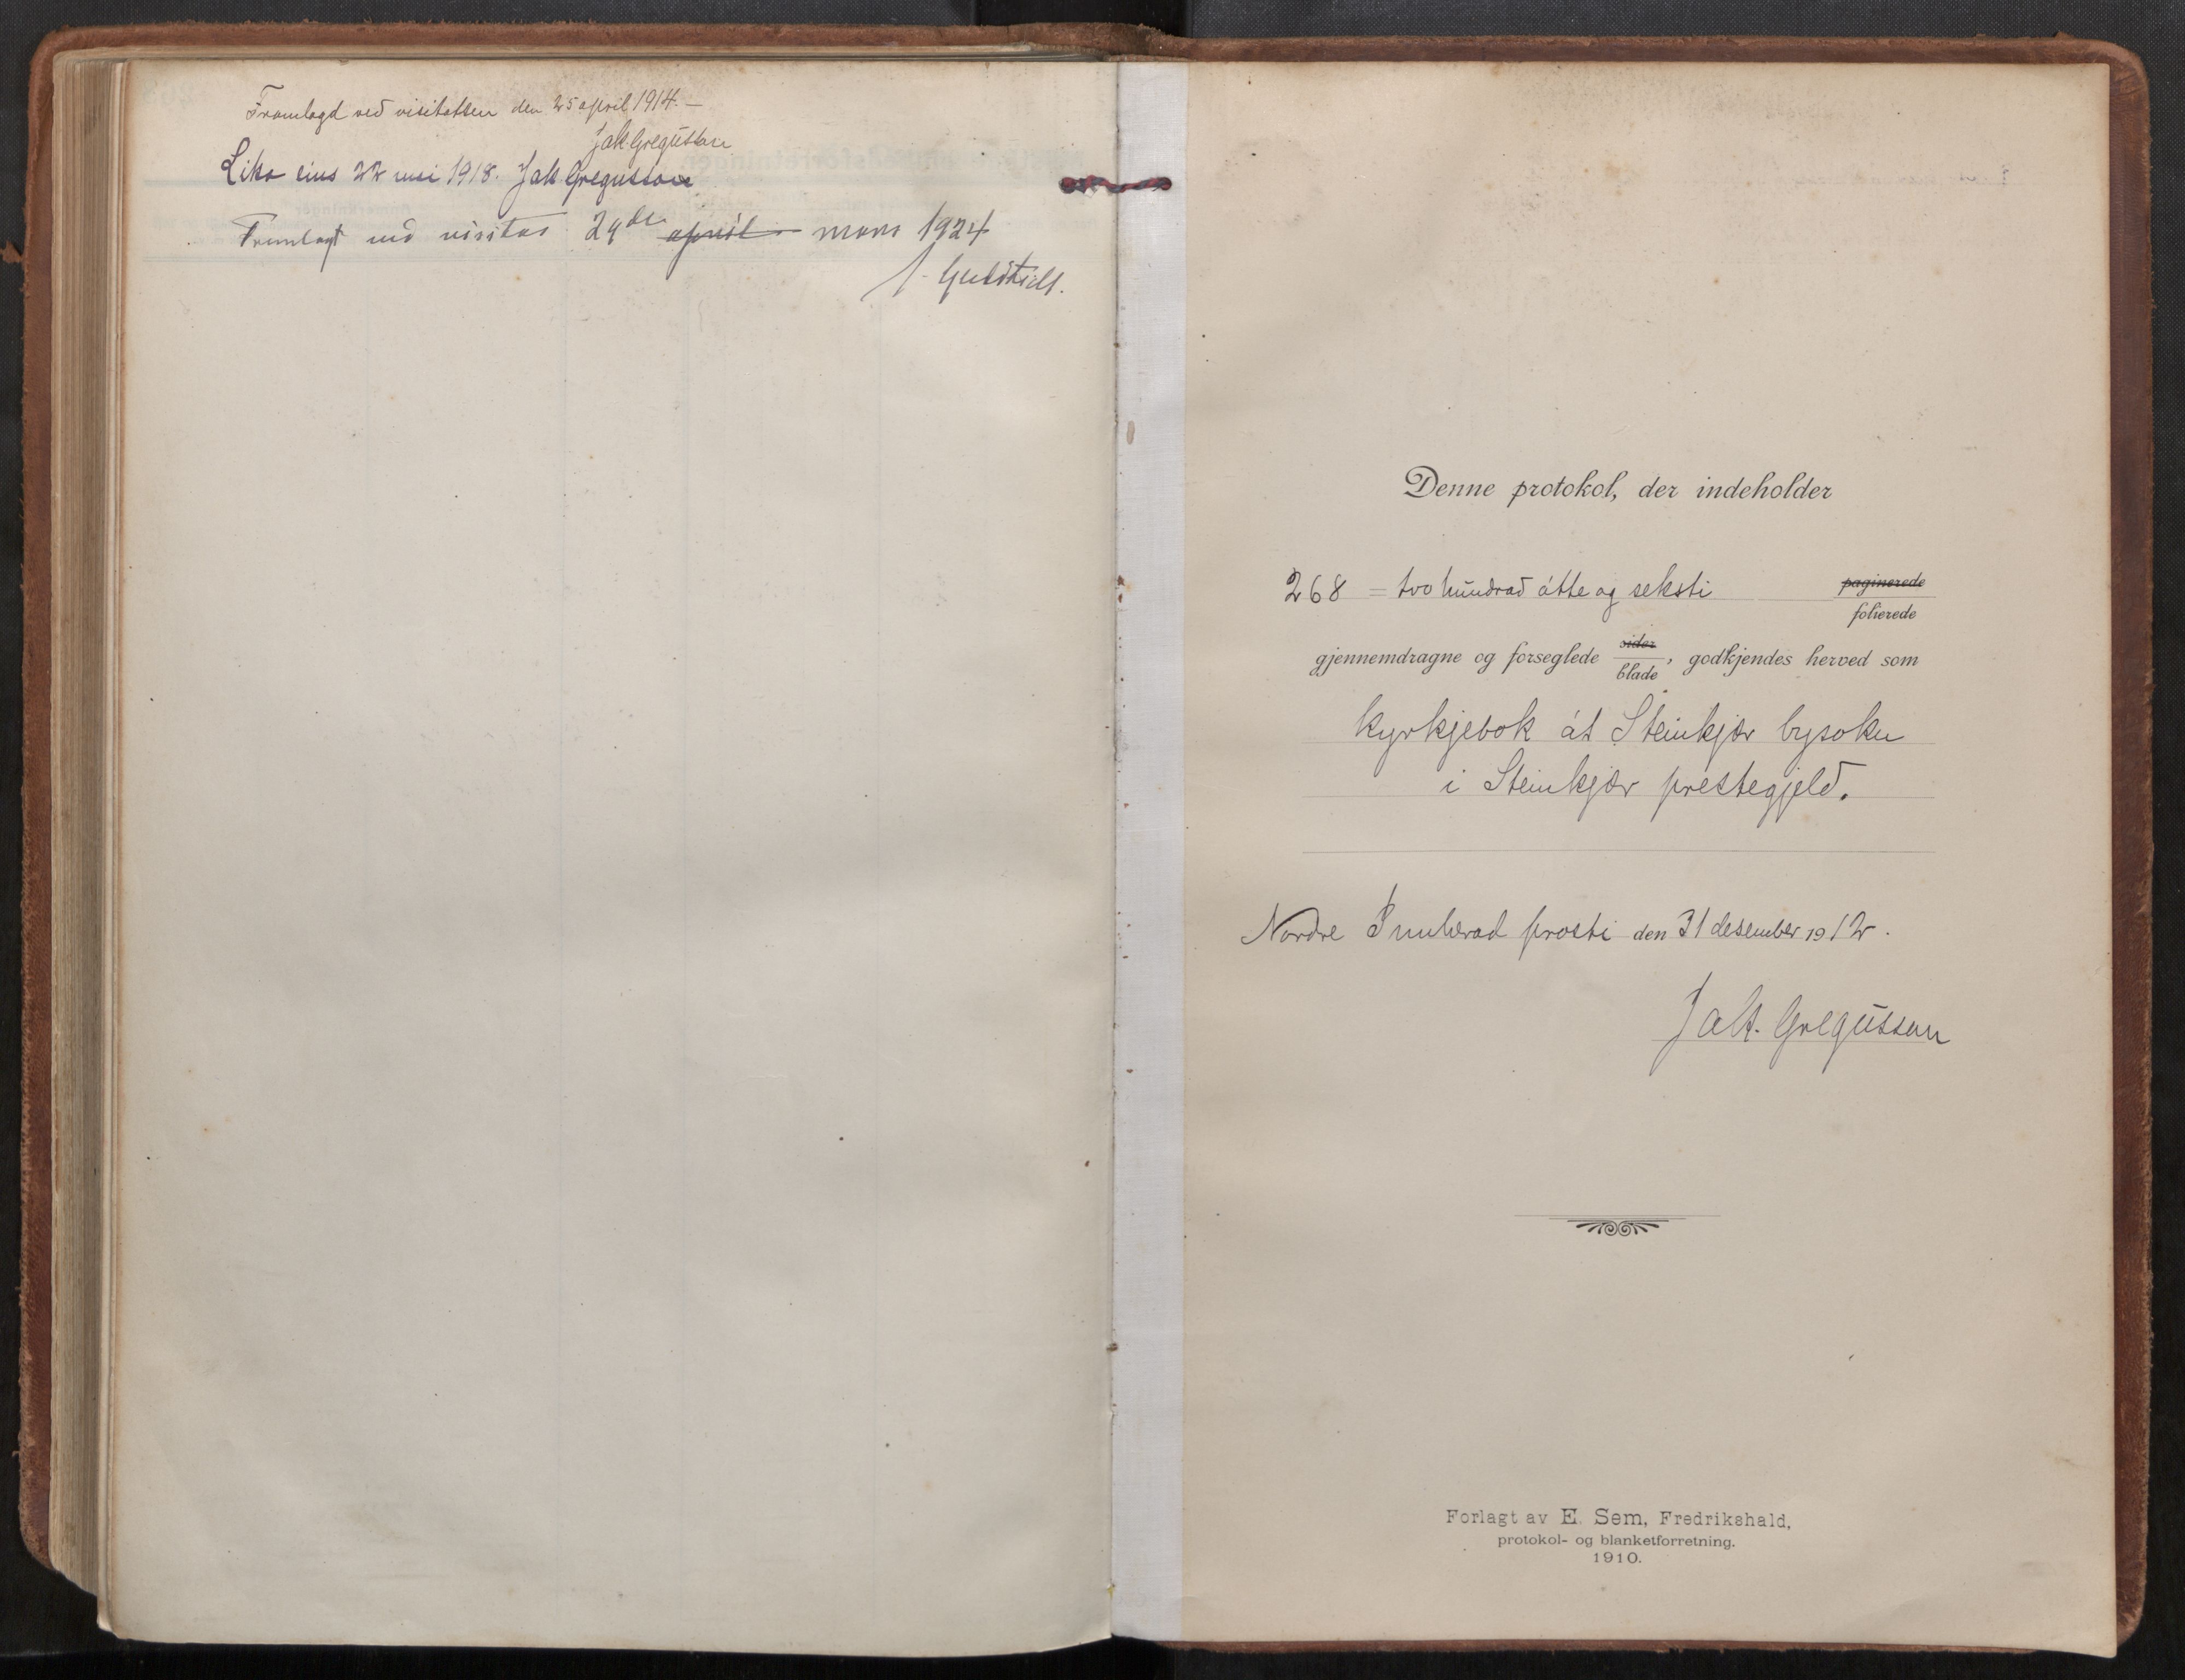 Framlagd ved visitatsen den 25 april 1914. —
Jak. Gregusson
Lika eins 22 mai 1918. Jak Gregusson
Fremlagt ved visitas 29de april mars 1924
Denne protokol, der indeholder
268 = tvo hundrad åtte og seksti paginerede
folierede
gjennemdragne og forseglede sider
blade, godkjendes herved som
kyrkjebok åt Steinkjær bysoku
i Steinkjær prestegjeld.
Nordre Innherad prosti den 31 desember 1912.
Jak. Gregusson
Forlagt av E. Sem, Fredrikshald,
protokol- og blanketforretning.
1910.